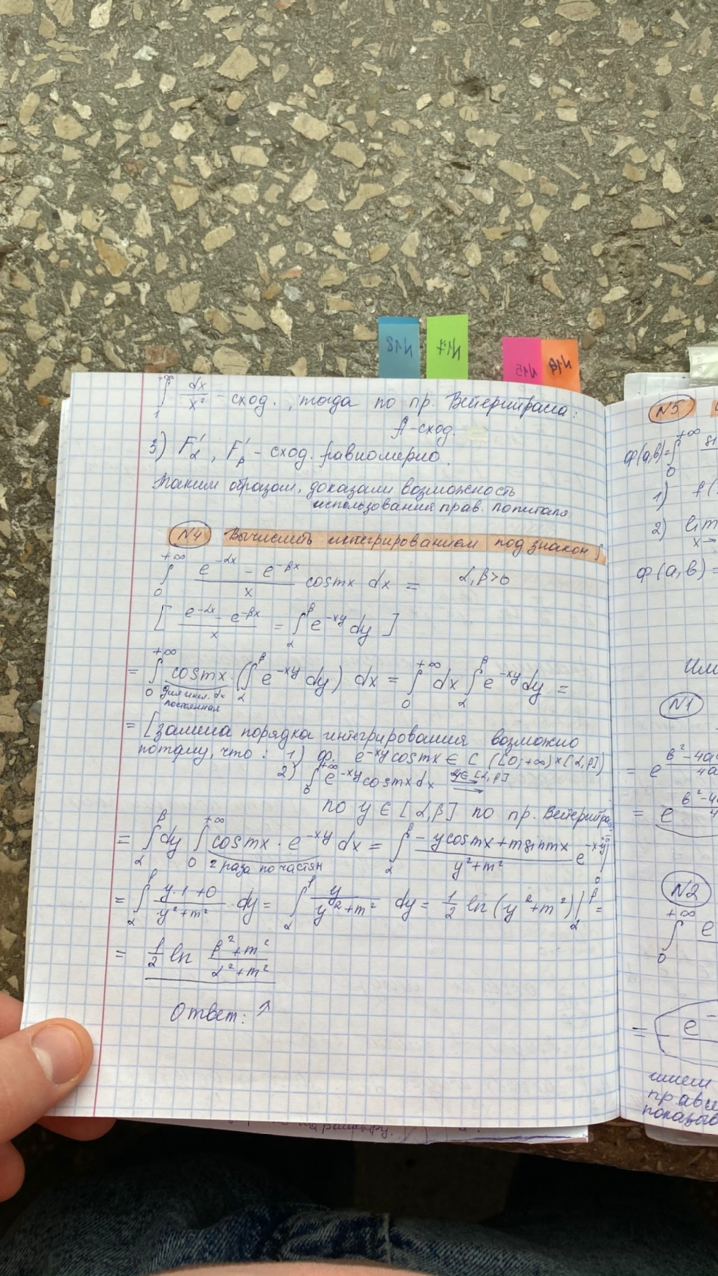 N18
N17
N15
N16
∫₁^{+∞} dx/x² - сход., тогда по пр. Вейерштрасса:
A-сход.
3) F'_α, F'_β - сход. равномерно.
Таким образом, доказали возможность
использования прав. Лопиталя
N4 Вычислить интегрированием под знаком ∫
∫₀^{+∞} (e^{-αx} - e^{-βx})/x cosmx dx = α,β>0
[(e^{-αx} - e^{-βx})/x = ∫_α^β e^{-xy} dy]
= ∫₀^{+∞} cosmx (∫_α^β e^{-xy} dy) dx = ∫₀^{+∞} dx ∫_α^β e^{-xy} dy =
для инт. dx
постоянная
= [замена порядка интегрирования возможно
потому, что: 1) ф. e^{-xy} cosmx ∈ C ([0,+∞)×[α,β])
2) ∫₀^{+∞} e^{-xy} cosmx dx ⇉^{y∈[α,β]}
по y ∈ [α,β] по пр. Вейерштра
= ∫_α^β dy ∫₀^{+∞} cosmx · e^{-xy} dx = ∫_α^β (-ycosmx + msinmx)/(y²+m²) e^{-xy}|₀
2 раза по частям
= ∫_α^β (y·1+0)/(y²+m²) dy = ∫_α^β y/(y²+m²) dy = 1/2 ln(y²+m²)|_α^β =
= 1/2 ln (β²+m²)/(α²+m²)
Ответ: ↗
N5
ф(a,b) = ∫₀^{+∞}
1) f(
2) lim
x→
ф(a,b) =
Им
N1
= e^{(b²-4a
= e^{(b²-4
N2
∫₀^{+∞} e
= -e⁻
имеем
прави
показ